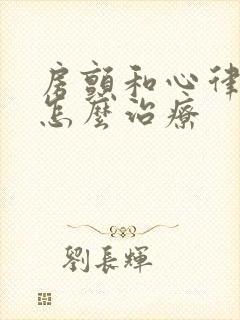 房顫和心律
怎麼治療
劉長輝